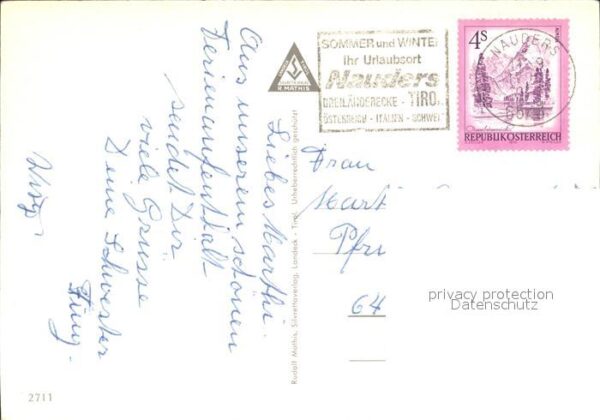 Liebes Marthi.
Aus unserem schönen
Ferienaufenthalt
sendet Dir
viele Grüsse
Deine Schwester
2711
R. MATHIS
Rudolf Mathis, Silvrettaverlag, Landeck - Tirol. Urheberrechtlich geschützt
SOMMER und WINTER
Ihr Urlaubsort
Nauders
DREILÄNDERECKE - TIROL
ÖSTERREICH - ITALIEN - SCHWEIZ
NAUDERS
4S
REPUBLIK ÖSTERREICH
Frau
Mart
Pfr
64
privacy protection
Datenschutz